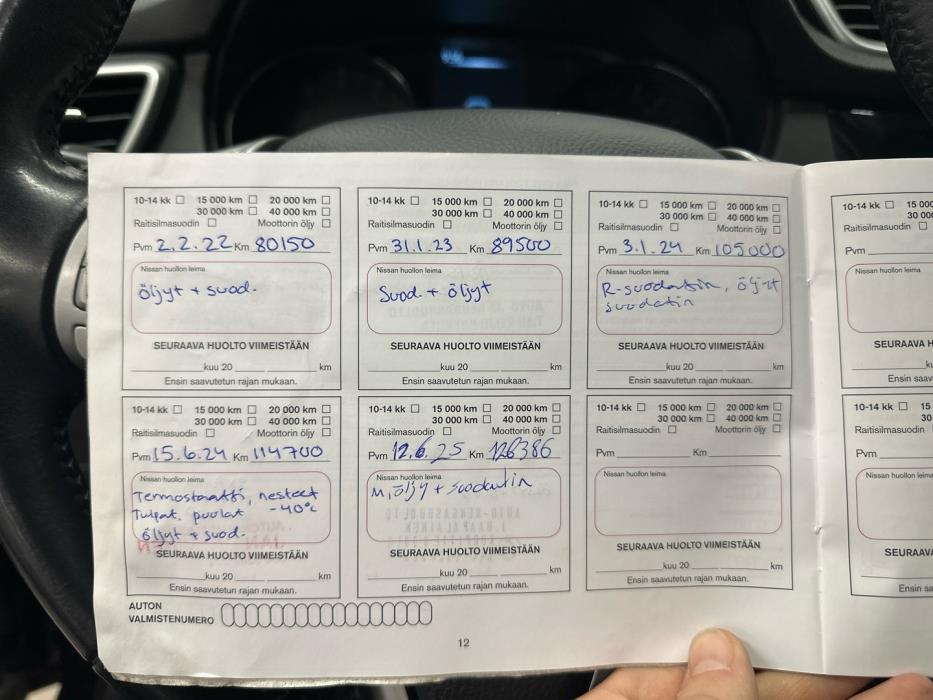 10-14 kk 15 000 km 20 000 km
30 000 km 40 000 km
Raitisilmasuodin Moottorin öljy
Pvm 2.2.22 Km 80150
Nissan huollon leima
öljyt + suod.
SEURAAVA HUOLTO VIIMEISTÄÄN
kuu 20 km
Ensin saavutetun rajan mukaan.
10-14 kk 15 000 km 20 000 km
30 000 km 40 000 km
Raitisilmasuodin Moottorin öljy
Pvm 31.1.23 Km 89500
Nissan huollon leima
Suod. + öljyt
SEURAAVA HUOLTO VIIMEISTÄÄN
kuu 20 km
Ensin saavutetun rajan mukaan.
10-14 kk 15 000 km 20 000 km
30 000 km 40 000 km
Raitisilmasuodin Moottorin öljy
Pvm 3.1.24 Km 105000
Nissan huollon leima
R-suodatin, öljyt
suodatin
SEURAAVA HUOLTO VIIMEISTÄÄN
kuu 20 km
Ensin saavutetun rajan mukaan.
10-14 kk
Raitisilmasuodin
Pvm
Nissan huollon leima
SEURAAVA H
Ensin saav
10-14 kk 15 000 km 20 000 km
30 000 km 40 000 km
Raitisilmasuodin Moottorin öljy
Pvm 15.6.24 Km 114700
Nissan huollon leima
Termostaatti, nesteet
Tulpat, puolat -40°C
öljyt + suod.
SEURAAVA HUOLTO VIIMEISTÄÄN
kuu 20 km
Ensin saavutetun rajan mukaan.
10-14 kk 15 000 km 20 000 km
30 000 km 40 000 km
Raitisilmasuodin Moottorin öljy
Pvm 12.6.25 Km 126386
Nissan huollon leima
M,öljy + suodatin
SEURAAVA HUOLTO VIIMEISTÄÄN
kuu 20 km
Ensin saavutetun rajan mukaan.
10-14 kk 15 000 km 20 000 km
30 000 km 40 000 km
Raitisilmasuodin Moottorin öljy
Pvm Km
Nissan huollon leima
SEURAAVA HUOLTO VIIMEISTÄÄN
kuu 20 km
Ensin saavutetun rajan mukaan.
10-14 kk
Raitisilmasuodin
Pvm
Nissan huollon leima
SEURAAVA
Ensin sa
AUTON
VALMISTENUMERO
12